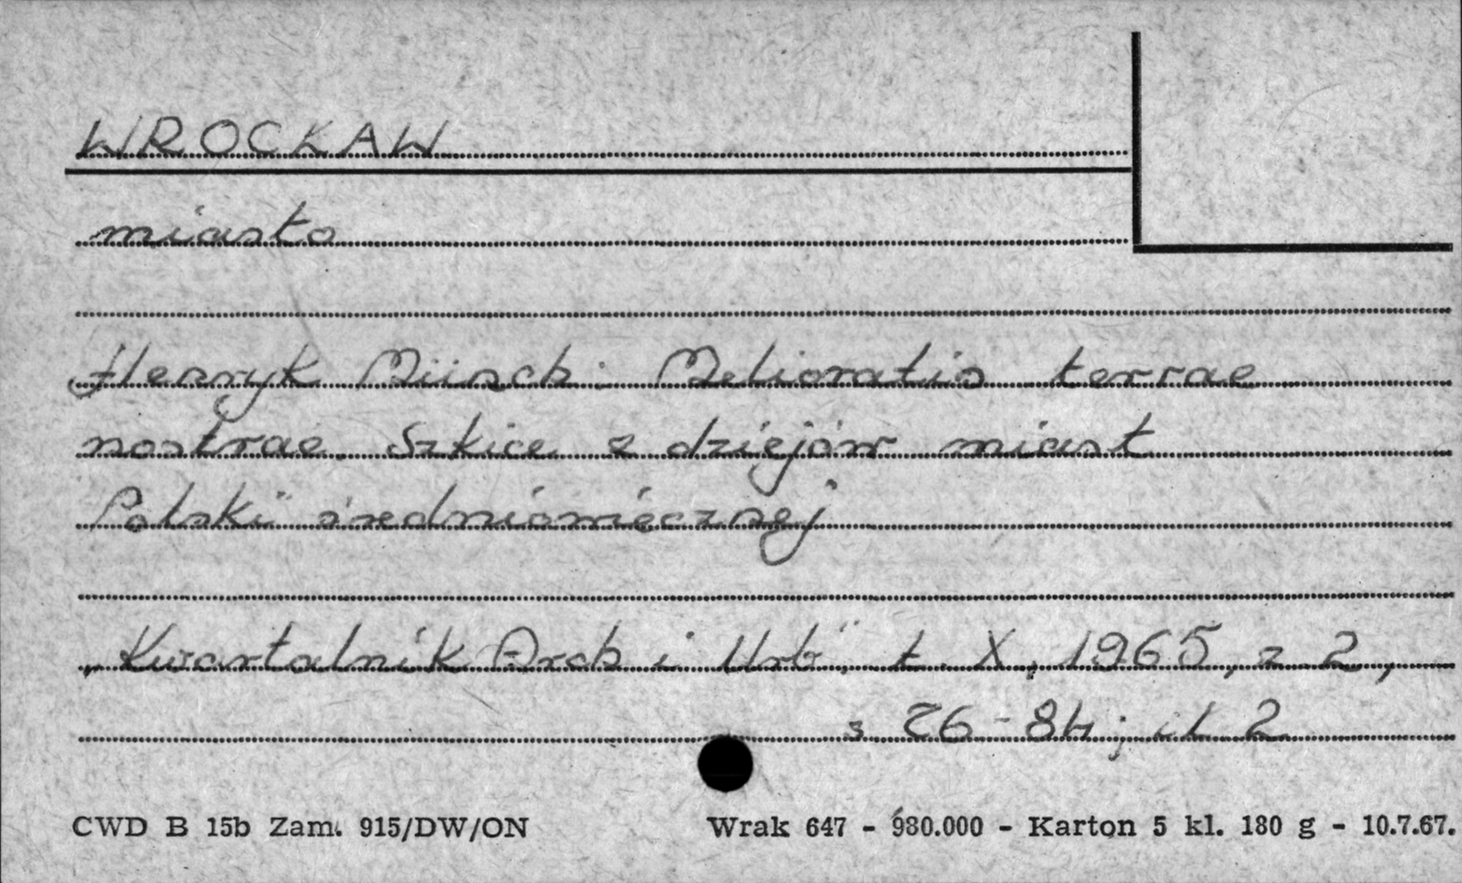 WROCŁAW
miasto
Henryk Münch: Melioratio terrae
nostrae. Szkice z dziejów miast
Polski średniowiecznej
„Kwartalnik Arch i Urb", t. X, 1965, z 2,
s 76-84; il 2
CWD B 15b Zam. 915/DW/ON
Wrak 647 - 980.000 - Karton 5 kl. 180 g - 10.7.67.